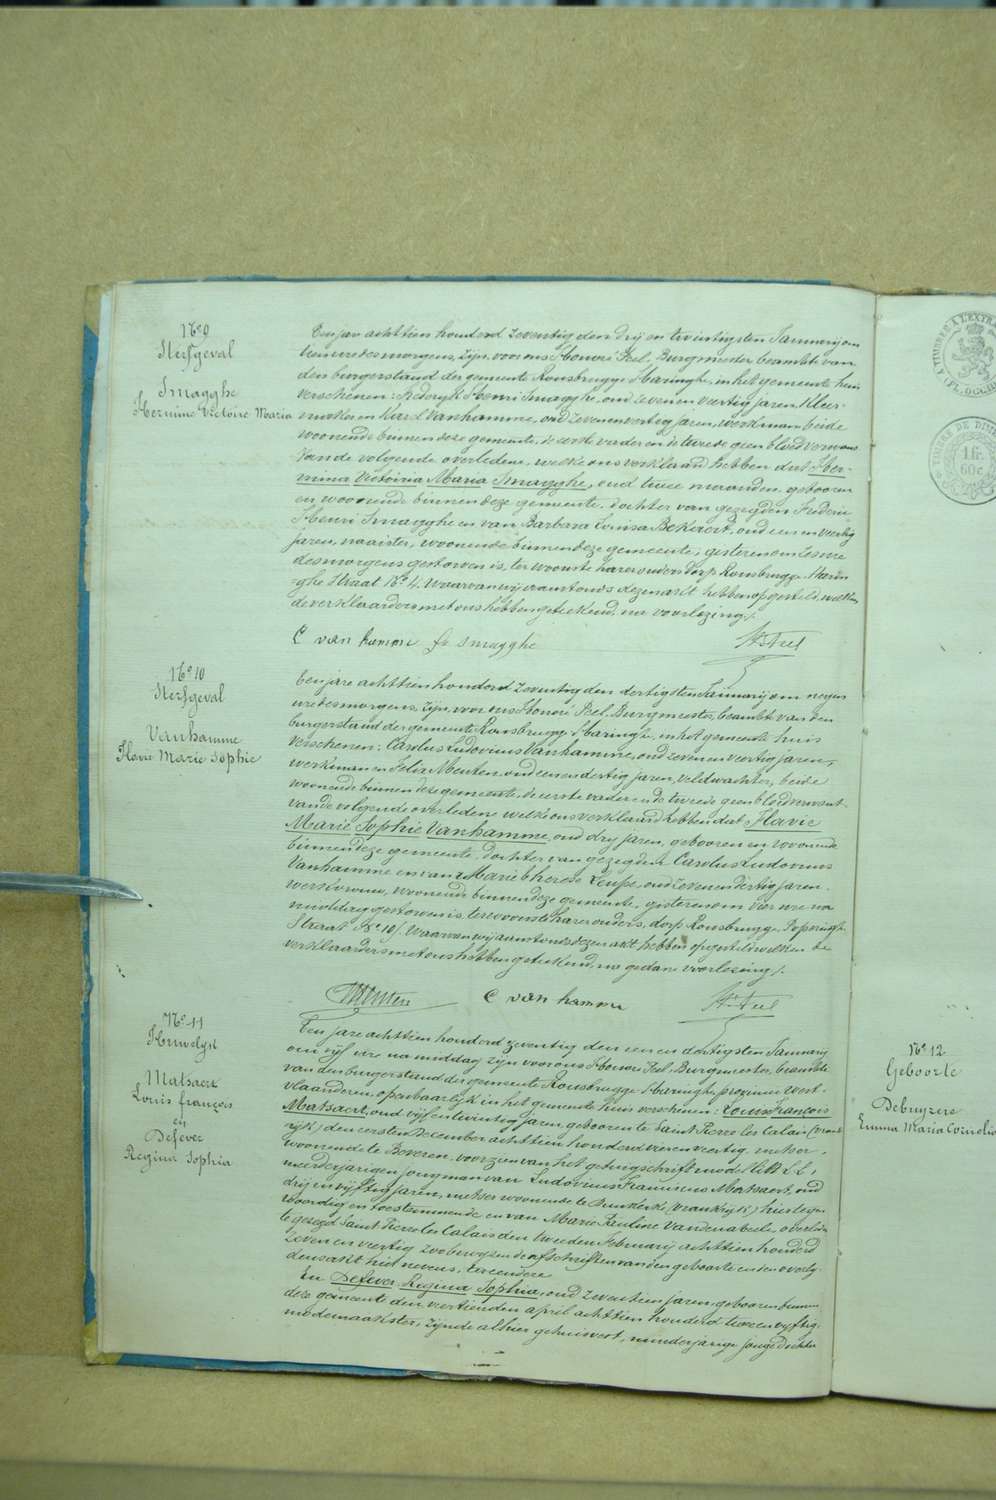 No 9
Sterfgeval
Smagghe
Hermine Victoire Maria
Een jare achttien honderd zeventig den drij en twintigsten Januarij om
tien ure des morgens, zijn voor ons Honoré Feel, Burgmeester beambte van
den burgerstand der gemeente Rousbrugge Haringhe, in het gemeente huis
verschenen: Frederyk Henri Smagghe, oud zeven en veertig jaren, kleer-
maker en Karel Vanhamme, oud zeven en veertig jaren, werkman beide
woonende binnen deze gemeente, de eerste vader en de tweede geen bloedverwant
van de volgende overledene, welke ons verklaard hebben dat Her-
mina Victoria Maria Smagghe, oud twee maanden, gebooren
en woonende binnen deze gemeente, dochter van gezegden Frederic
Henri Smagghe en van Barbara Louisa Bekaert, oud een en veertig
jaren, naaister, woonende binnen deze gemeente, gisteren om zes ure
des morgens gestorven is, ter woonste harer ouders dorp Rousbrugge Harin-
ghe Straat No 4. Waarvan wij aanstonds dezen akt hebben opgesteld, welken
de verklaarders met ons hebben geteekend, na voorlezing /.
C van hamme fr Smagghe Hre Feel
No 10
Sterfgeval
Vanhamme
Flavie Marie Sophie
Een jare achttien honderd zeventig den dertigsten Januarij om negen
ure des morgens, zijn voor ons Honoré Feel, Burgmeester, beambte van den
burgerstand der gemeente Rousbrugge Haringhe, in het gemeente huis
verschenen: Carolus Ludovicus Vanhamme, oud zeven en veertig jaren,
werkman en Felix Meuten, oud een en dertig jaren, veldwachter, beide
woonende binnen deze gemeente, de eerste vader en de tweede geen bloedverwant
van de volgende overledene welke ons verklaard hebben dat Flavie
Marie Sophie Vanhamme, oud dry jaren, gebooren en woonende
binnen deze gemeente, dochter van gezegden Carolus Ludovicus
Vanhamme en van Marie therese oud zeven en dertig jaren,
werkvrouw, woonende binnen deze gemeente, gisteren om vier ure na
middag gestorven is, ter woonste harer ouders, dorp Rousbrugge Poperingh
Straat No 10/. Waarvan wij aanstonds dezen akt hebben opgesteld welken de
verklaarders met ons hebben geteekend, na gedane voorlezing /.
C van hamme Hre Feel
No 11
Huwelyk
Matsaert
Louis françois
en
Defever
Regina Sophia
Een jare achttien honderd zeventig den een en dertigsten Januarij
om vijf ure na middag zijn voor ons Honoré Feel Burgmeester, beambte
van den burgerstand der gemeente Rousbrugge Haringhe, provincie West-
vlaanderen, openbaarlijk in het gemeente huis verschenen: Louis François
Matsaert, oud vijf en twintig jaren, gebooren te Saint Pierre les Calais (Frank-
rijk) den eersten December achttien honderd vier en veertig, metser,
woonende te Beveren, voorzien van het getuigschrift model Litt L L,
meerderjarigen jongman van Ludovicus Franciscus Matsaert, oud
drij en vijftig jaren, metser woonende te Duinkerke (Frankrijk) hier tegen-
woordig en toestemmende, en van Marie Pauline Vandenabeele, overleden
te gezegd Saint Pierre les Calais den tweeden Februarij achttien honderd
zeven en veertig zoo bewijzen de afschriften van den geboorte en den overly-
dens akt hier nevens, ter eendere
En Defever Regina Sophia, oud zeventien jaren, gebooren binnen
deze gemeente den viertienden april achttien honderd twee en vyftig,
modemaakster, zijnde alhier gehuisvest, minderjarige jonge dochter
No 12
Geboorte
Debuyzere
Emma Maria Cornelia
1 fr.
60 c.